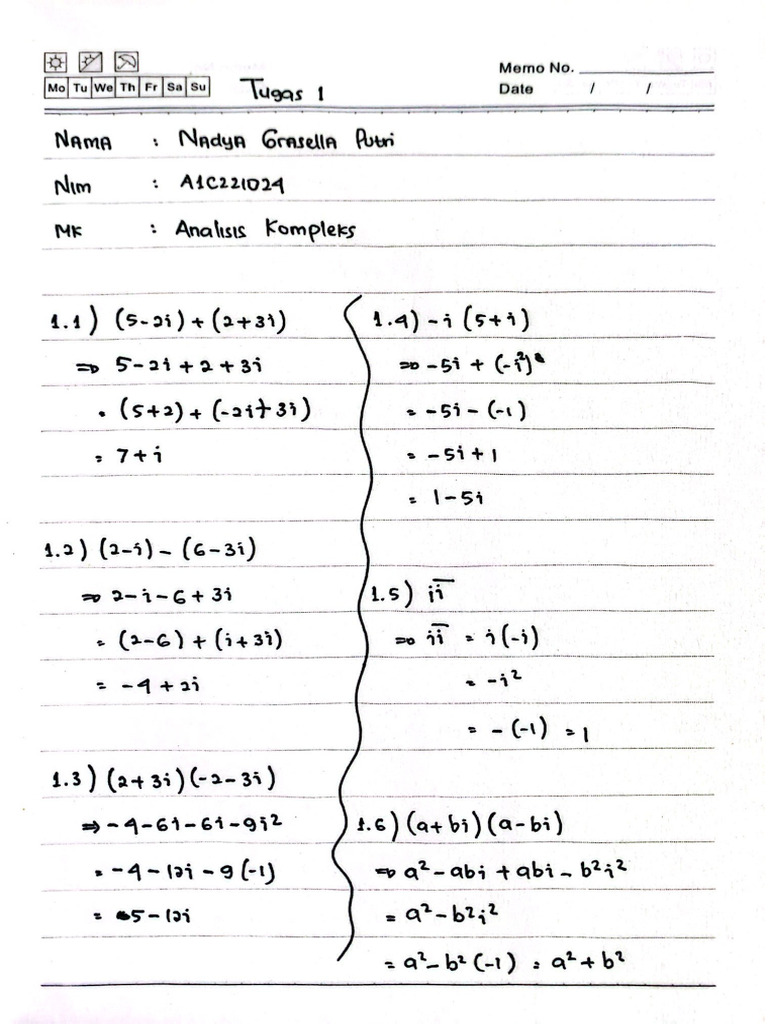 Memo No.
Mo Tu We Th Fr Sa Su
Tugas 1
Date / /
NAMA : NAdyA GrAsellA Putri
Nim : A1C221024
MK : Analisis Kompleks
1.1) (5-2i) + (2+3i)
⇒ 5-2i+2+3i
= (5+2) + (-2i+3i)
= 7+i
1.2) (2-i) - (6-3i)
⇒ 2-i-6+3i
= (2-6) + (i+3i)
= -4+2i
1.3) (2+3i)(-2-3i)
⇒ -4-6i-6i-9i²
= -4-12i-9(-1)
= 5-12i
1.4) -i (5+i)
⇒ -5i + (-i²)
= -5i-(-1)
= -5i+1
= 1-5i
1.5) ii̅
⇒ ii̅ = i(-i)
= -i²
= -(-1) = 1
1.6) (a+bi)(a-bi)
⇒ a²-abi+abi-b²i²
= a²-b²i²
= a²-b²(-1) = a²+b²